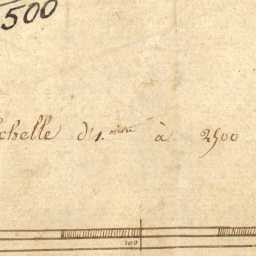 500
chelle d'1. mètre à 2500
100